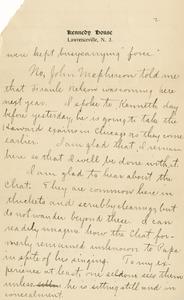 2
Kennedy House
Lawrenceville, N. J.
were kept busy carrying "force".
No, John Mcpherson told me
that Frank Nelson was coming here
next year. I spoke to Kenneth day
before yesterday, he is going to take the
Harvard exams in Chicago as they come
earlier. I am glad that, I remain
here so that I will be done with it.
I am glad to hear about the
Chat. They are common here in
thickets and scrubby clearings but
do not wander beyond these. I can
readily imagine how the Chat for-
merly remained unknown to Cape
in spite of his singing. In my ex-
periences at least, one seldom sees them
unless he is sitting still and in
concealment.